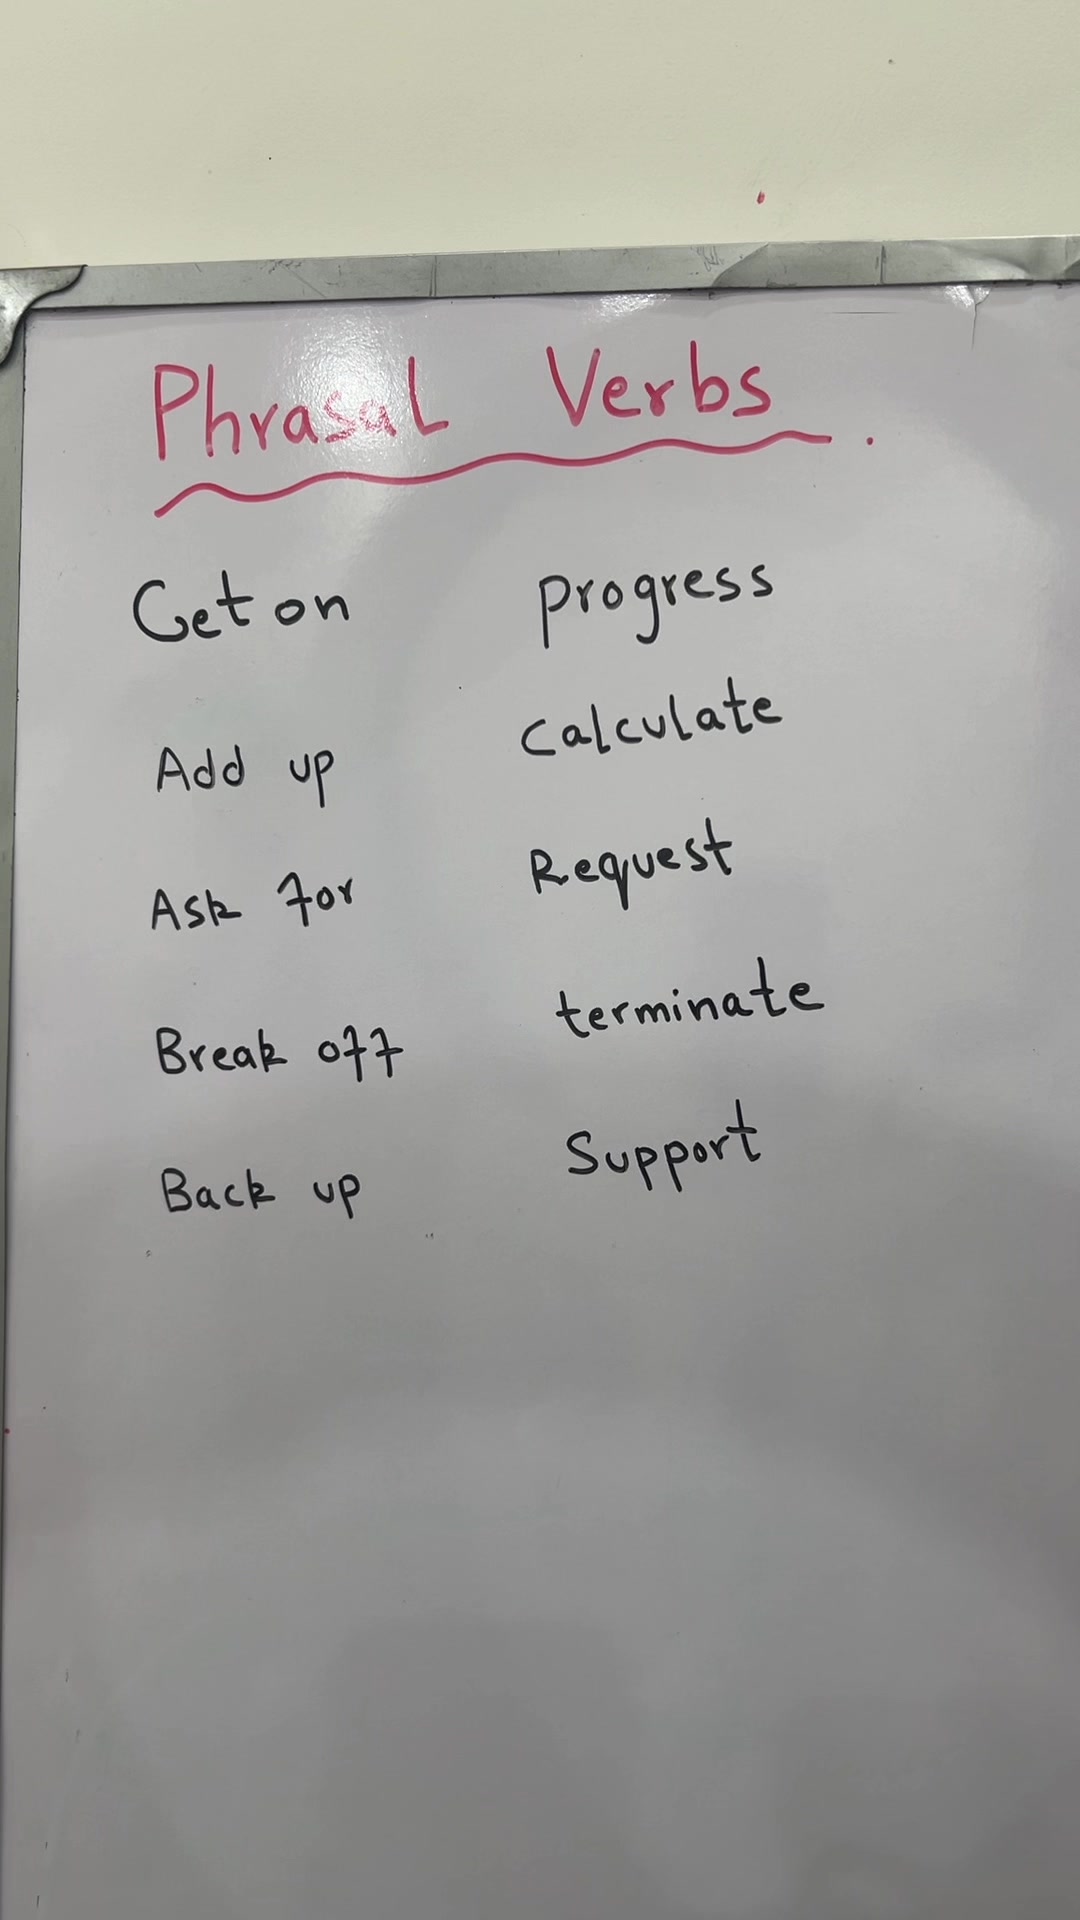 Phrasal Verbs.
Get on progress
Add up calculate
Ask for Request
Break off terminate
Back up Support